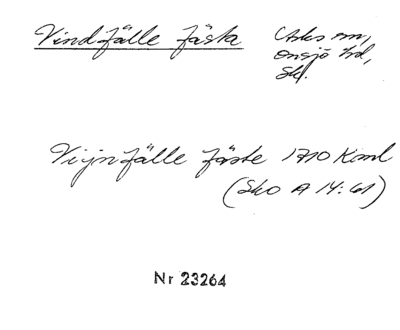 Vindfälle fästa
Asks sn,
Onsjö hd,
Sk.
Vijnfälle fäste 1710 Koml
(Sko A 14:61)
Nr 23264